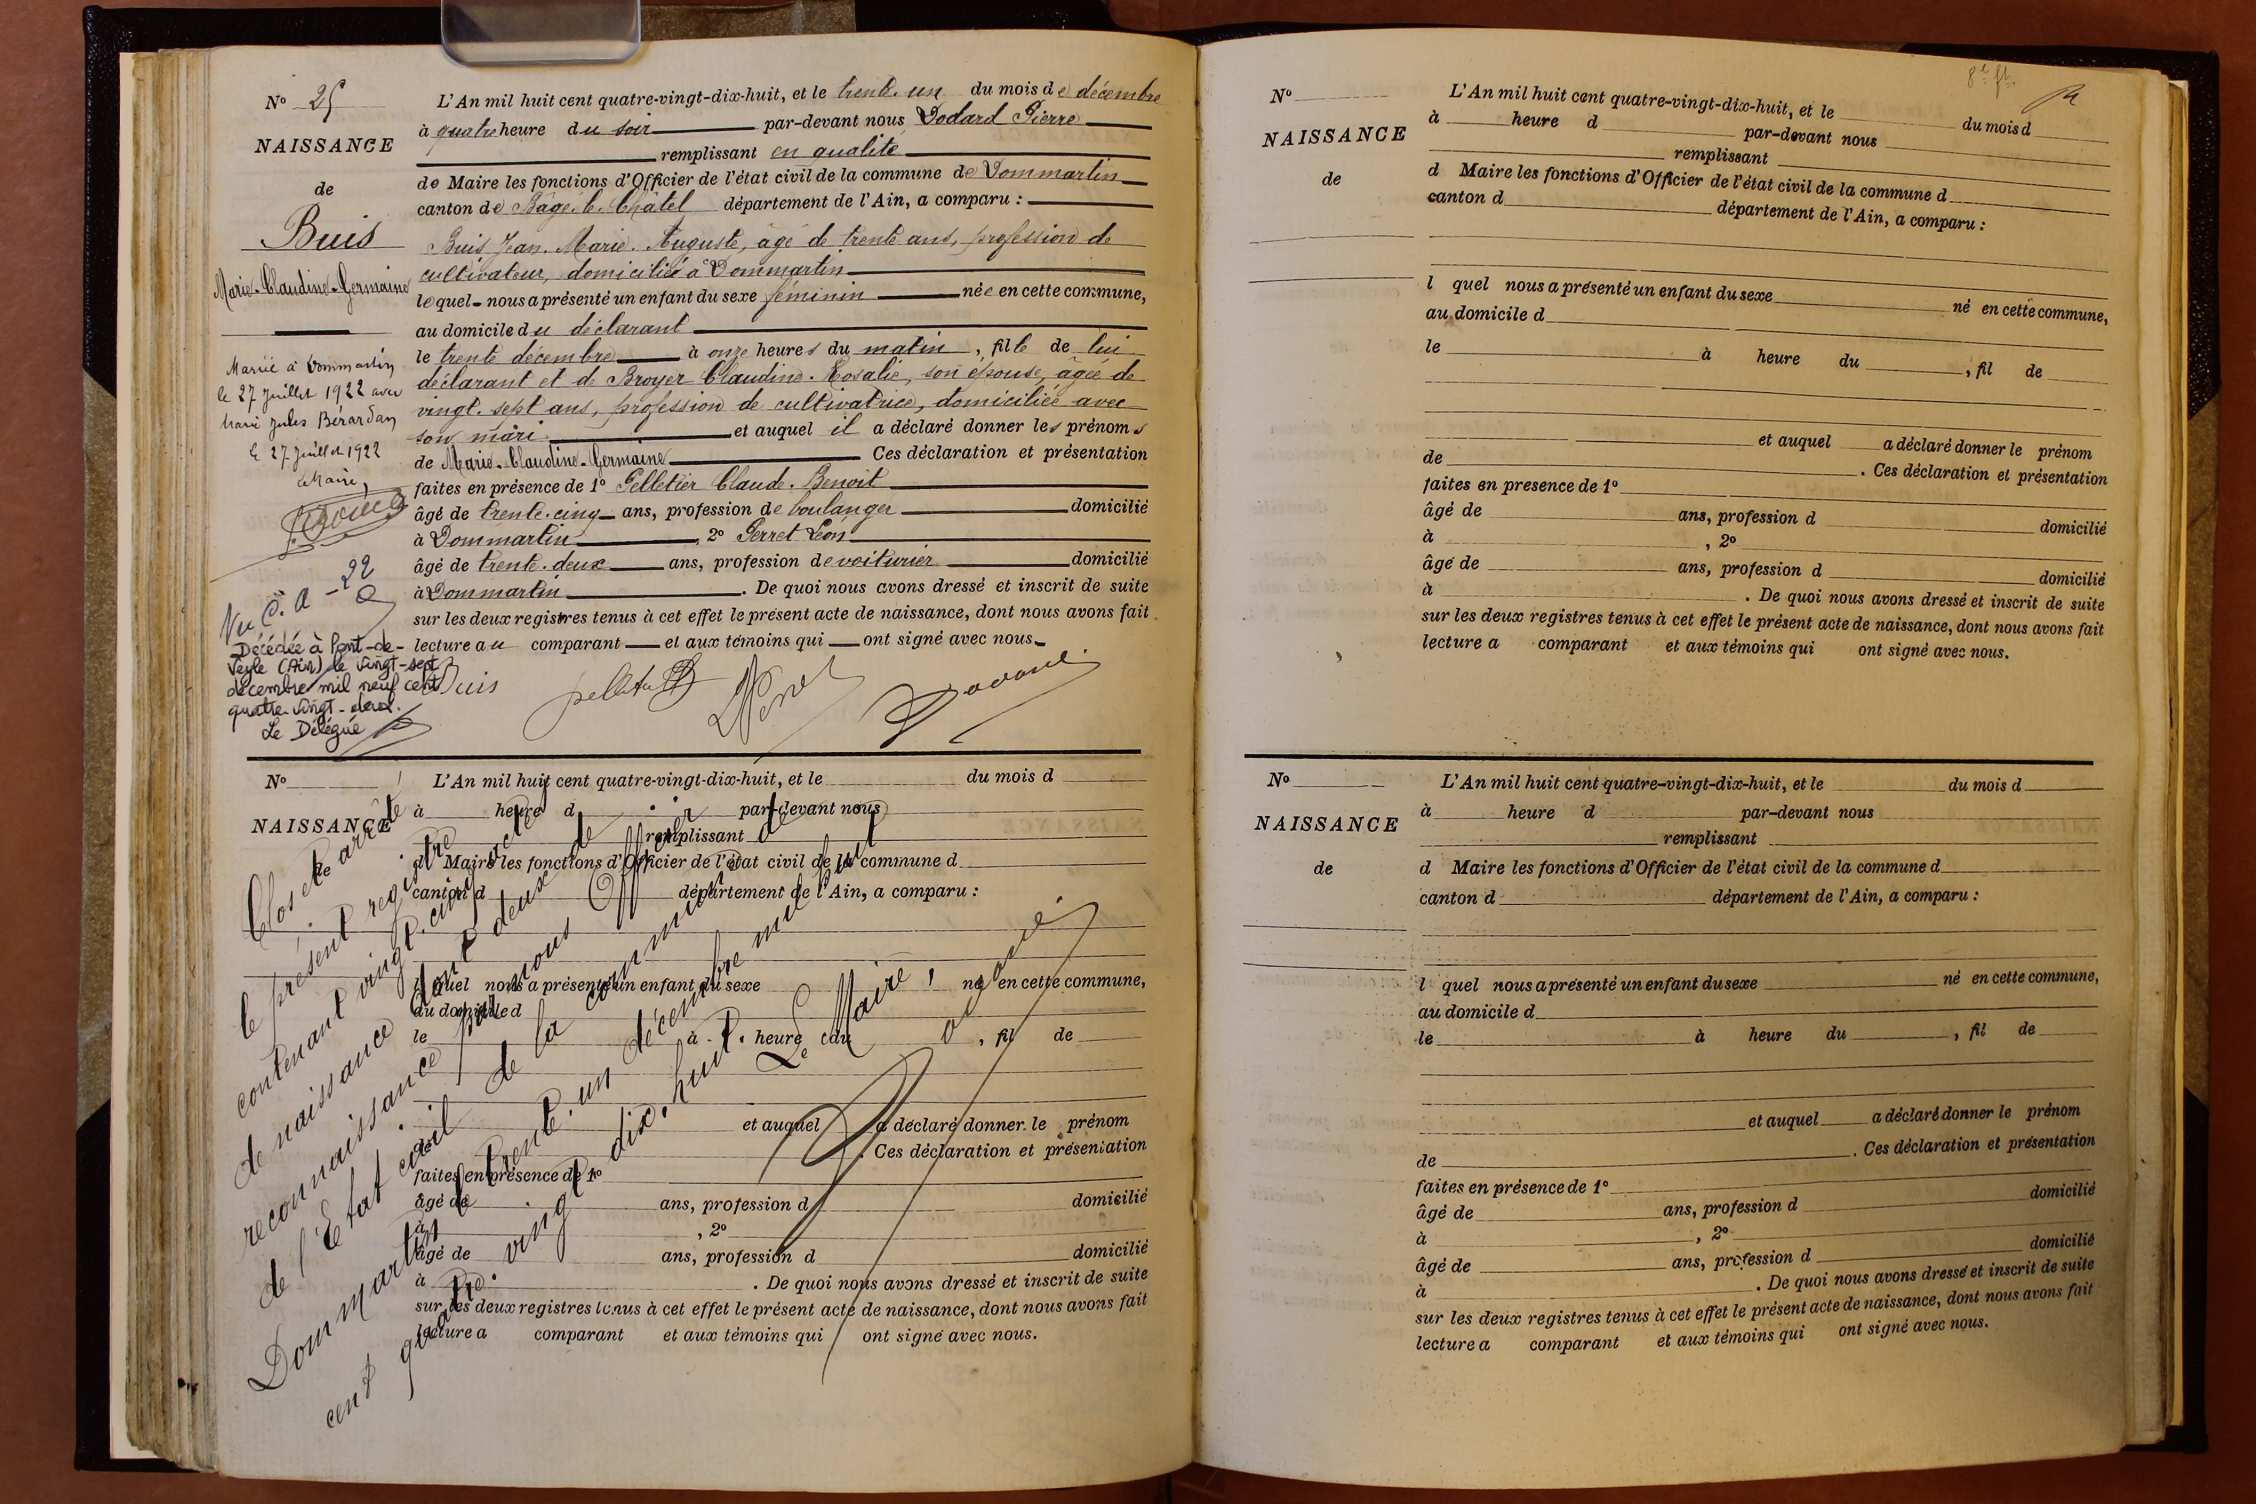 N° 25
NAISSANCE
de
Buis
Marie-Claudine-Germaine
Mariée à Dommartin
le 27 Juillet 1922 avec
Marie Jules Bérardan
le 27 Juillet 1922
le Maire,
Vu C. a - 22
Décédée à Pont-de-
Veyle (Ain) le vingt-sept
décembre mil neuf cent
quatre-vingt-deux.
Le Délégué
L'An mil huit cent quatre-vingt-dix-huit, et le trente-un du mois de décembre
à quatre heure du soir par-devant nous Dodard Pierre
remplissant en qualité
de Maire les fonctions d'Officier de l'état civil de la commune de Dommartin
canton de Bâgé-le-Châtel département de l'Ain, a comparu :
Buis Jean-Marie-Auguste, âgé de trente ans, profession de
cultivateur, domicilié à Dommartin
lequel nous a présenté un enfant du sexe féminin née en cette commune,
au domicile du déclarant
le trente décembre à onze heures du matin, fille de lui
déclarant et de Broyer Claudine-Rosalie, son épouse, âgée de
vingt-sept ans, profession de cultivatrice, domiciliée avec
son mari et auquel il a déclaré donner les prénoms
de Marie-Claudine-Germaine Ces déclaration et présentation
faites en présence de 1° Pelletier Claude-Benoit
âgé de trente-cinq ans, profession de boulanger domicilié
à Dommartin, 2° Perret Léon
âgé de trente-deux ans, profession de voiturier domicilié
à Dommartin. De quoi nous avons dressé et inscrit de suite
sur les deux registres tenus à cet effet le présent acte de naissance, dont nous avons fait
lecture au comparant et aux témoins qui ont signé avec nous.
Buis
N°
NAISSANCE
de
L'An mil huit cent quatre-vingt-dix-huit, et le du mois d
à heure d par-devant nous
remplissant
d Maire les fonctions d'Officier de l'état civil de la commune d
canton d département de l'Ain, a comparu :
l quel nous a présenté un enfant du sexe né en cette commune,
au domicile d
le à heure du , fil de
et auquel a déclaré donner le prénom
de . Ces déclaration et présentation
faites en présence de 1°
âgé de ans, profession d domicilié
à , 2°
âgé de ans, profession d domicilié
à . De quoi nous avons dressé et inscrit de suite
sur les deux registres tenus à cet effet le présent acte de naissance, dont nous avons fait
lecture a comparant et aux témoins qui ont signé avec nous.
Clos et arrêté
le présent registre
contenant vingt-cinq actes
de naissance dont deux de
reconnaissance par nous Officier
de l'Etat civil de la commune de
Dommartin le trente-un décembre mil huit
cent quatre-vingt-dix-huit
Le Maire,
8e ft.
N°
NAISSANCE
de
L'An mil huit cent quatre-vingt-dix-huit, et le du mois d
à heure d par-devant nous
remplissant
d Maire les fonctions d'Officier de l'état civil de la commune d
canton d département de l'Ain, a comparu :
l quel nous a présenté un enfant du sexe né en cette commune,
au domicile d
le à heure du , fil de
et auquel a déclaré donner le prénom
de . Ces déclaration et présentation
faites en presence de 1°
âgé de ans, profession d domicilié
à , 2°
âgé de ans, profession d domicilié
à . De quoi nous avons dressé et inscrit de suite
sur les deux registres tenus à cet effet le présent acte de naissance, dont nous avons fait
lecture a comparant et aux témoins qui ont signé avec nous.
N°
NAISSANCE
de
L'An mil huit cent quatre-vingt-dix-huit, et le du mois d
à heure d par-devant nous
remplissant
d Maire les fonctions d'Officier de l'état civil de la commune d
canton d département de l'Ain, a comparu :
l quel nous a présenté un enfant du sexe né en cette commune,
au domicile d
le à heure du , fil de
et auquel a déclaré donner le prénom
de . Ces déclaration et présentation
faites en présence de 1°
âgé de ans, profession d domicilié
à , 2°
âgé de ans, profession d domicilié
à . De quoi nous avons dressé et inscrit de suite
sur les deux registres tenus à cet effet le présent acte de naissance, dont nous avons fait
lecture a comparant et aux témoins qui ont signé avec nous.